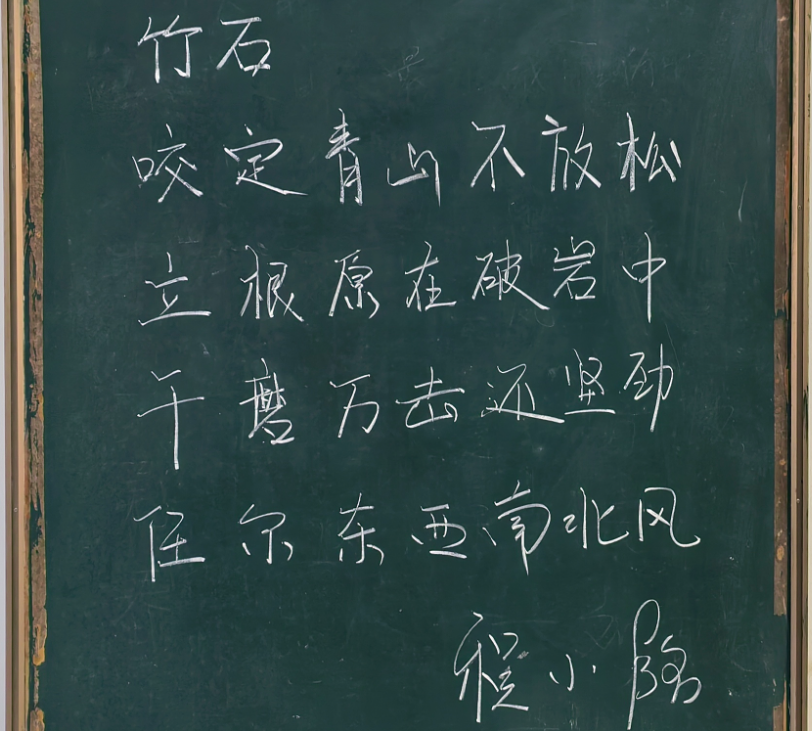 竹石
咬定青山不放松
立根原在破岩中
千磨万击还坚劲
任尔东西南北风
程小